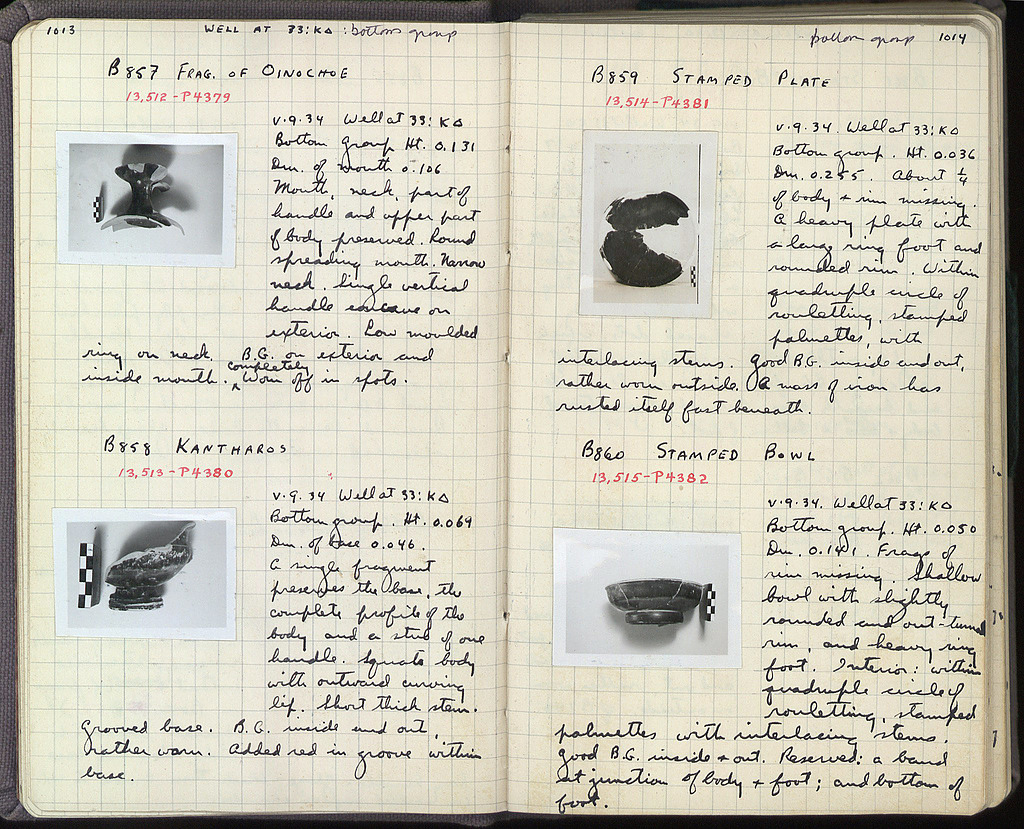 1013 WELL AT 33:ΚΔ : bottom group
B857 FRAG. OF OINOCHOE
13,512-P4379
V.9.34 Well at 33:ΚΔ
Bottom group Ht. 0.131
Dm. of mouth 0.106
Mouth, neck, part of
handle and upper part
of body preserved. Round
spreading mouth. Narrow
neck. Single vertical
handle concave on
exterior. Low moulded
ring on neck. B.G. on exterior and
completely
inside mouth. ^ Worn off in spots.
B858 KANTHAROS
13,513-P4380
V.9.34 Well at 33:ΚΔ
Bottom group. Ht. 0.069
Dm. of base 0.046.
A single fragment
preserves the base, the
complete profile of the
body and a stub of one
handle. Squat body
with outward curving
lip. Short thick stem.
Grooved base. B.G. inside and out,
rather worn. Added red in groove within
base.
bottom group 1014
B859 STAMPED PLATE
13,514-P4381
V.9.34. Well at 33:ΚΔ
Bottom group. Ht. 0.036
Dm. 0.255. About ¼
of body + rim missing.
A heavy plate with
a large ring foot and
rounded rim. Within
quadruple circle of
rouletting, stamped
palmettes, with
interlacing stems. Good B.G. inside and out,
rather worn outside. A mass of iron has
rusted itself fast beneath.
B860 STAMPED BOWL
13,515-P4382
V.9.34. Well at 33:ΚΔ
Bottom group. Ht. 0.050
Dm. 0.141. Frags of
rim missing. Shallow
bowl with slightly
rounded and out-turned
rim, and heavy ring
foot. Interior: within
quadruple circle of
rouletting, stamped
palmettes with interlacing stems.
Good B.G. inside + out. Reserved: a band
at junction of body + foot; and bottom of
foot.